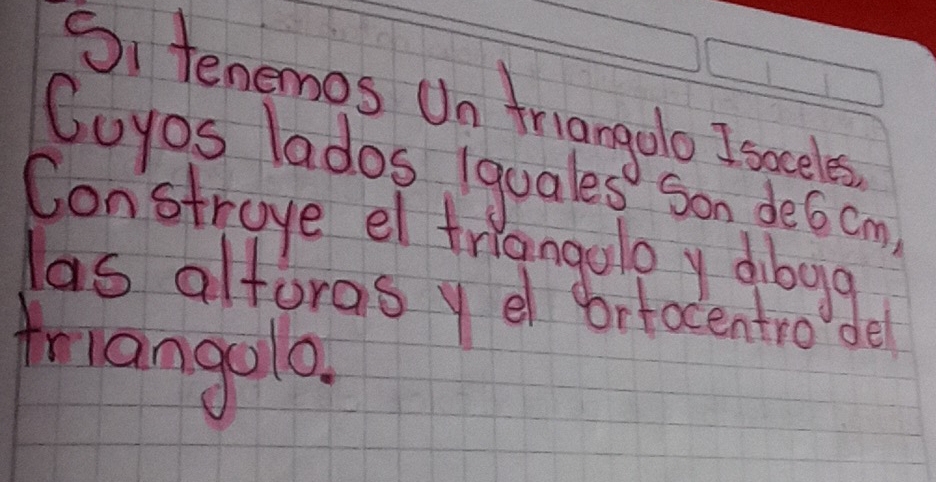 Si tenemos Un triangulo Isoceles,
Cuyos lados iguales son de 6 cm,
Construye el triangulo y dibuja
las alturas y el Ortocentro del
triangulo.